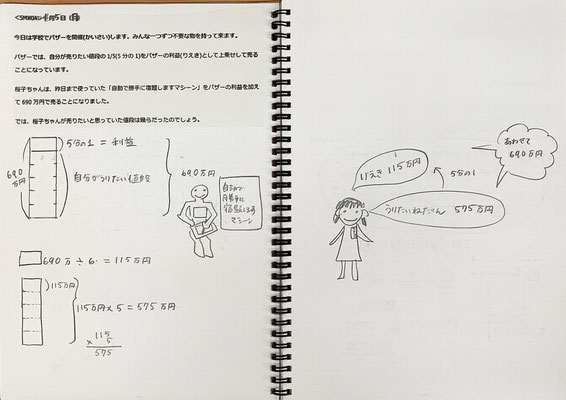 4月5日
今日は学校でバザーを開催(かいさい)します。みんな一つずつ不要な物を持って来ます。
バザーでは、自分が売りたい値段の1/5(5分の1)をバザーの利益(りえき)として上乗せして売る
ことになっています。
桜子ちゃんは、昨日まで使っていた「自動で勝手に宿題しますマシーン」をバザーの利益を加え
て690万円で売ることになりました。
では、桜子ちゃんが売りたいと思っていた値段は幾らだったのでしょう。
5分の1 = 利益
690
万円
自分がうりたい値段
690万円
マシーン
690万 ÷ 6 = 115万円
115万円
115万円 × 5 = 575万円
115
× 5
575
あわせて
690万円
りえき 115万円
5分の1
うりたいねだん 575万円